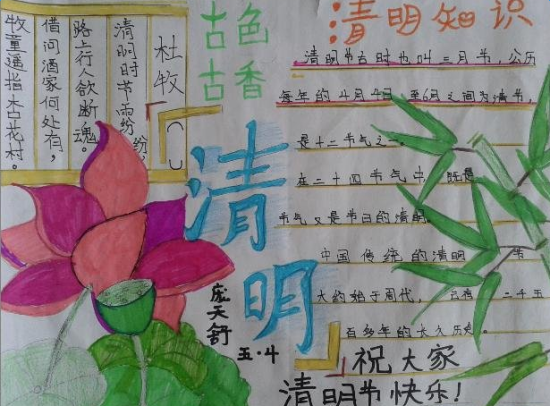 杜牧
清明时节雨纷纷，
路上行人欲断魂。
借问酒家何处有，
牧童遥指杏花村。
古色
古香
清明
庞天舒
五·4
清明知识
清明节古时也叫三月节，公历
每年的4月4日至6日之间为清节，
是二十节气之一。
在二十四节气中，既是
节气又是节日的清明。
中国传统的清明节
大约始于周代，二千五
百多年的大久历史。
祝大家
清明节快乐！